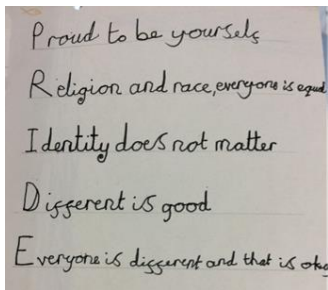 Proud to be yourself
Religion and race, everyone is equal
Identity does not matter
Different is good
Everyone is different and that is okay